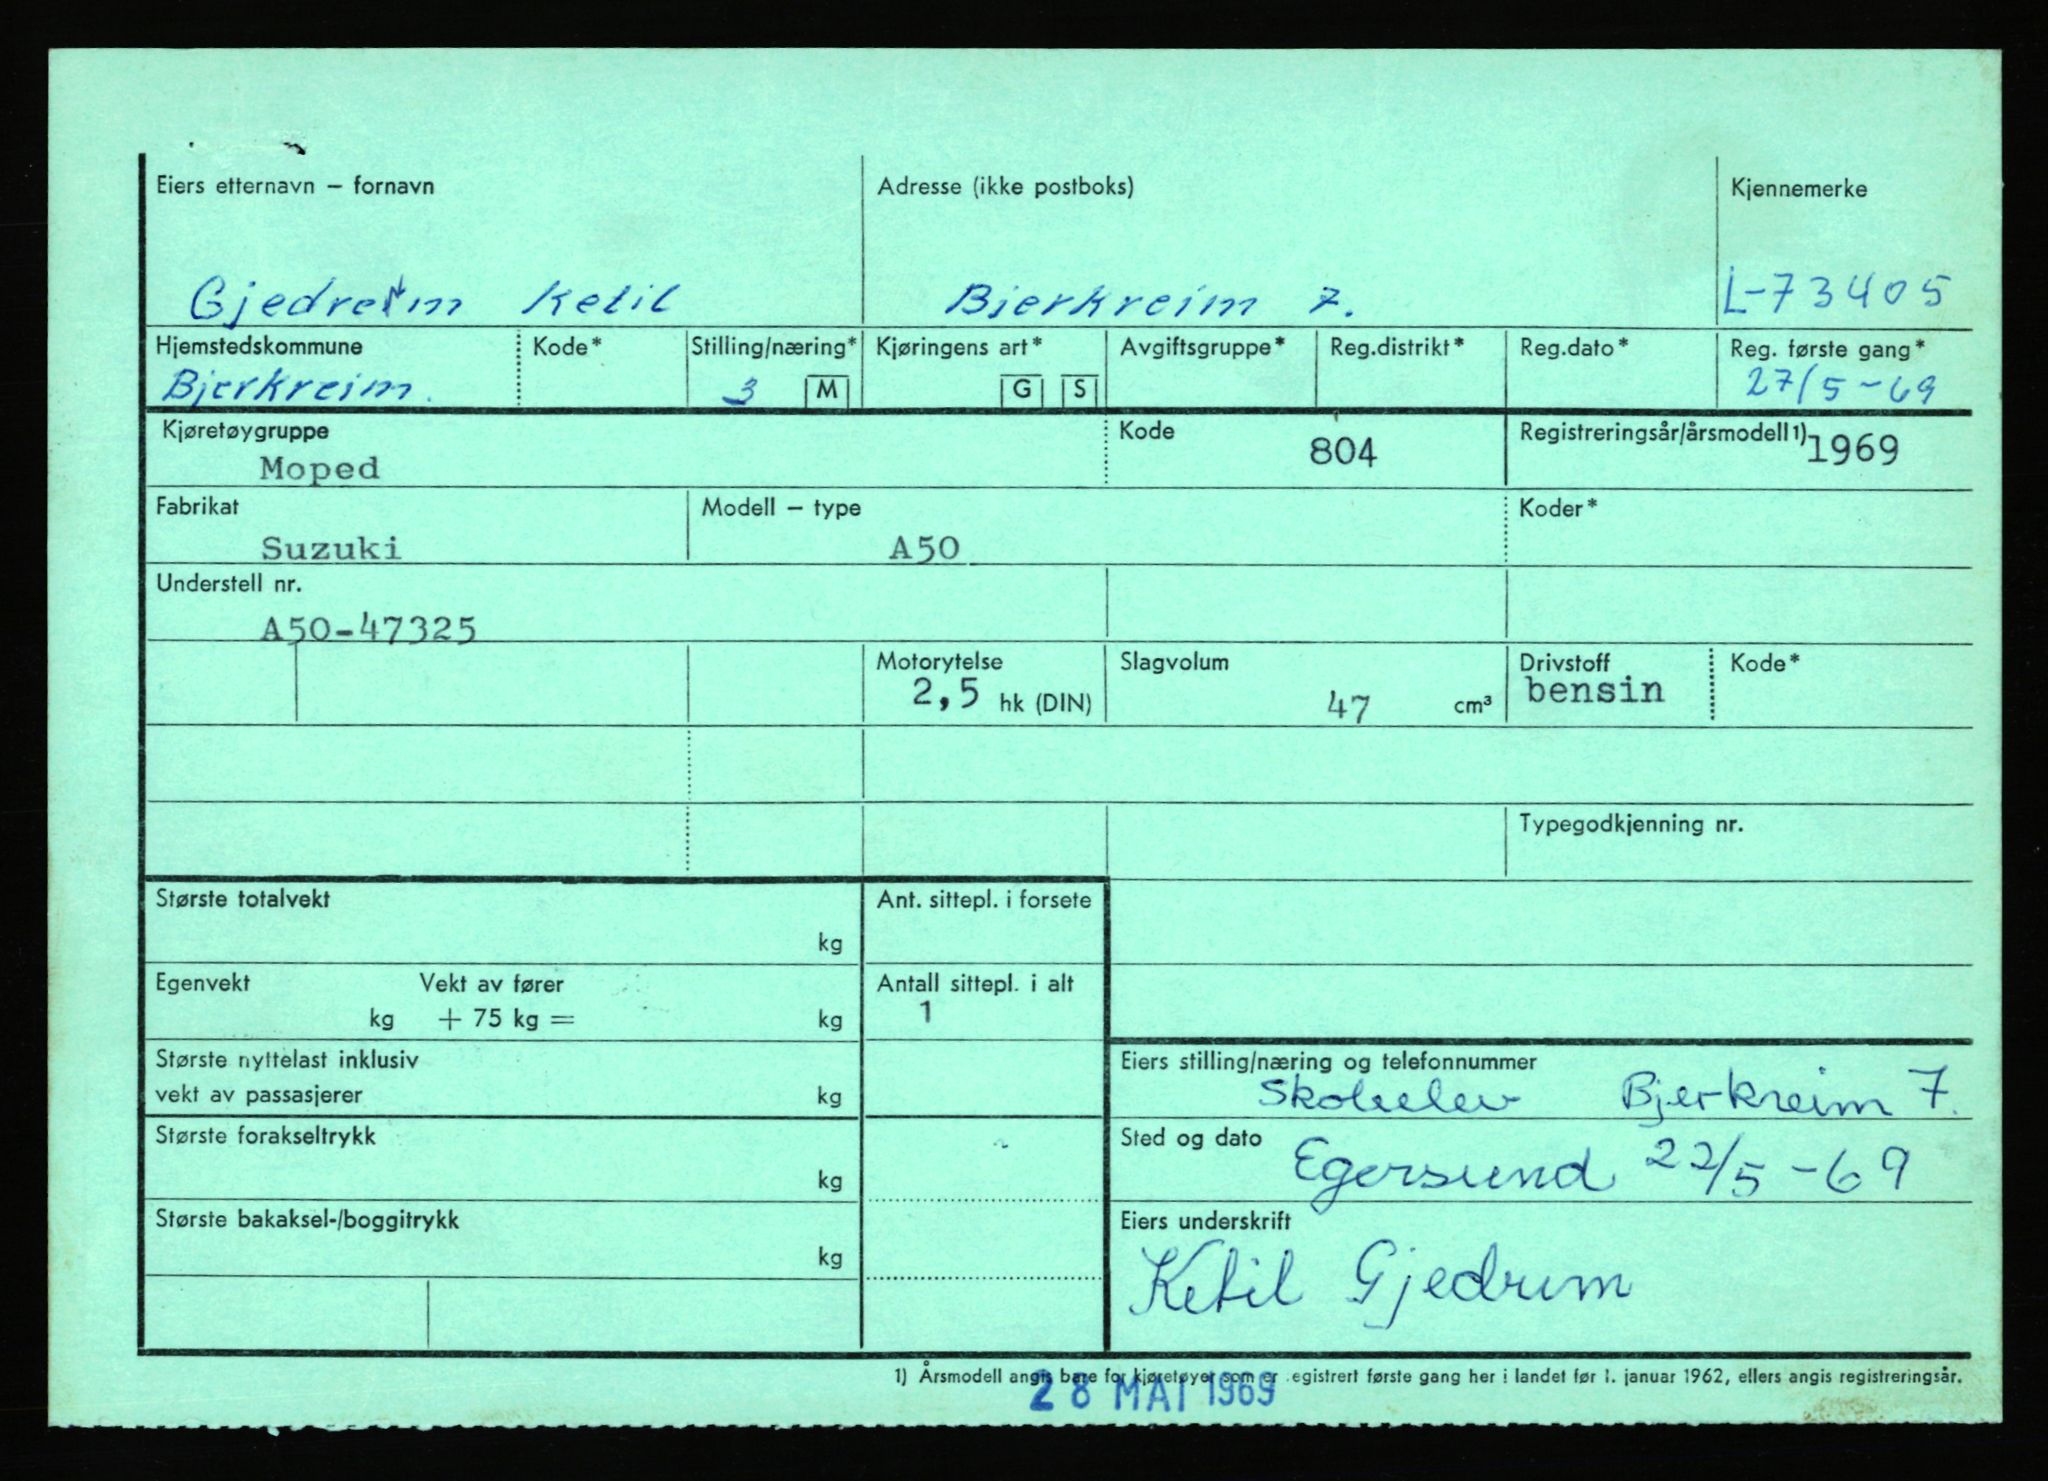 Eiers etternavn – fornavn Adresse (ikke postboks) Kjennemerke
Gjedreim Ketil Bjerkreim 7. L-73405
Hjemstedskommune Kode* Stilling/næring* Kjøringens art* Avgiftsgruppe* Reg.distrikt* Reg.dato* Reg. første gang*
Bjerkreim. 3 M G S 27/5-69
Kjøretøygruppe Kode Registreringsår/årsmodell 1)
Moped 804 1969
Fabrikat Modell – type Koder*
Suzuki A50
Understell nr.
A50-47325
Motorytelse Slagvolum Drivstoff Kode*
2,5 hk (DIN) 47 cm³ bensin
Typegodkjenning nr.
Største totalvekt Ant. sittepl. i forsete
kg
Egenvekt Vekt av fører Antall sittepl. i alt
kg + 75 kg = kg 1
Største nyttelast inklusiv
vekt av passasjerer kg
Eiers stilling/næring og telefonnummer
Skoleelev Bjerkreim 7.
Største forakseltrykk
kg
Sted og dato Egersund 22/5-69
Største bakaksel-/boggitrykk
kg
Eiers underskrift
Ketil Gjedreim
1) Årsmodell angis bare for kjøretøyer som er registrert første gang her i landet før 1. januar 1962, ellers angis registreringsår.
28 MAI 1969